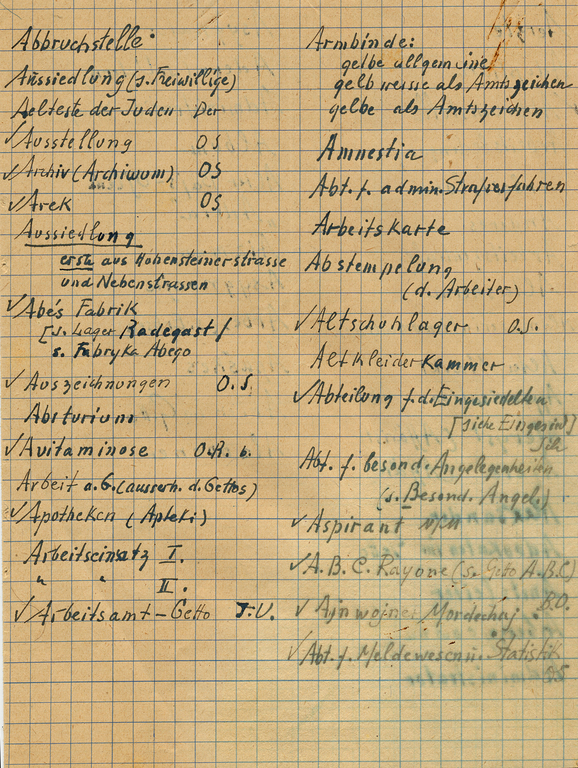 Abbruchstelle
Aussiedlung (s. Freiwillige)
Aelteste der Juden Der
✓ Ausstellung OS
✓ Archiv (Archiwum) OS
✓ Arek OS
Aussiedlung
erste aus Hohensteinerstrasse
und Nebenstrassen
✓ Abe's Fabrik
[s. Lager Radegast /
s. Fabryka Abego
✓ Auszeichnungen O.S.
Abiturium
✓ Avitaminose O.R. b.
Arbeit a.G. (ausserh. d. Gettos)
✓ Apotheken (Apteki)
Arbeitseinsatz I.
" " II.
✓ Arbeitsamt - Getto J.U.
Armbinde:
gelbe allgemeine
gelb weisse als Amtszeichen
gelbe als Amtszeichen
Amnestia
Abt. f. admin. Strafverfahren
Arbeitskarte
Abstempelung
(d. Arbeiter)
✓ Altschuhlager O.S.
Altkleiderkammer
✓ Abteilung f.d. Eingesiedelten
[siehe Einges
Abt. f. besond. Angelegenheiten
(s. Besond. Angel.)
✓ Aspirant
✓ A.B.C. Rayone (s. Getto A.B.C)
✓ Ajnwojner Mordechaj B.O.
✓ Abt. f. Meldewesen u. Statistik
OS